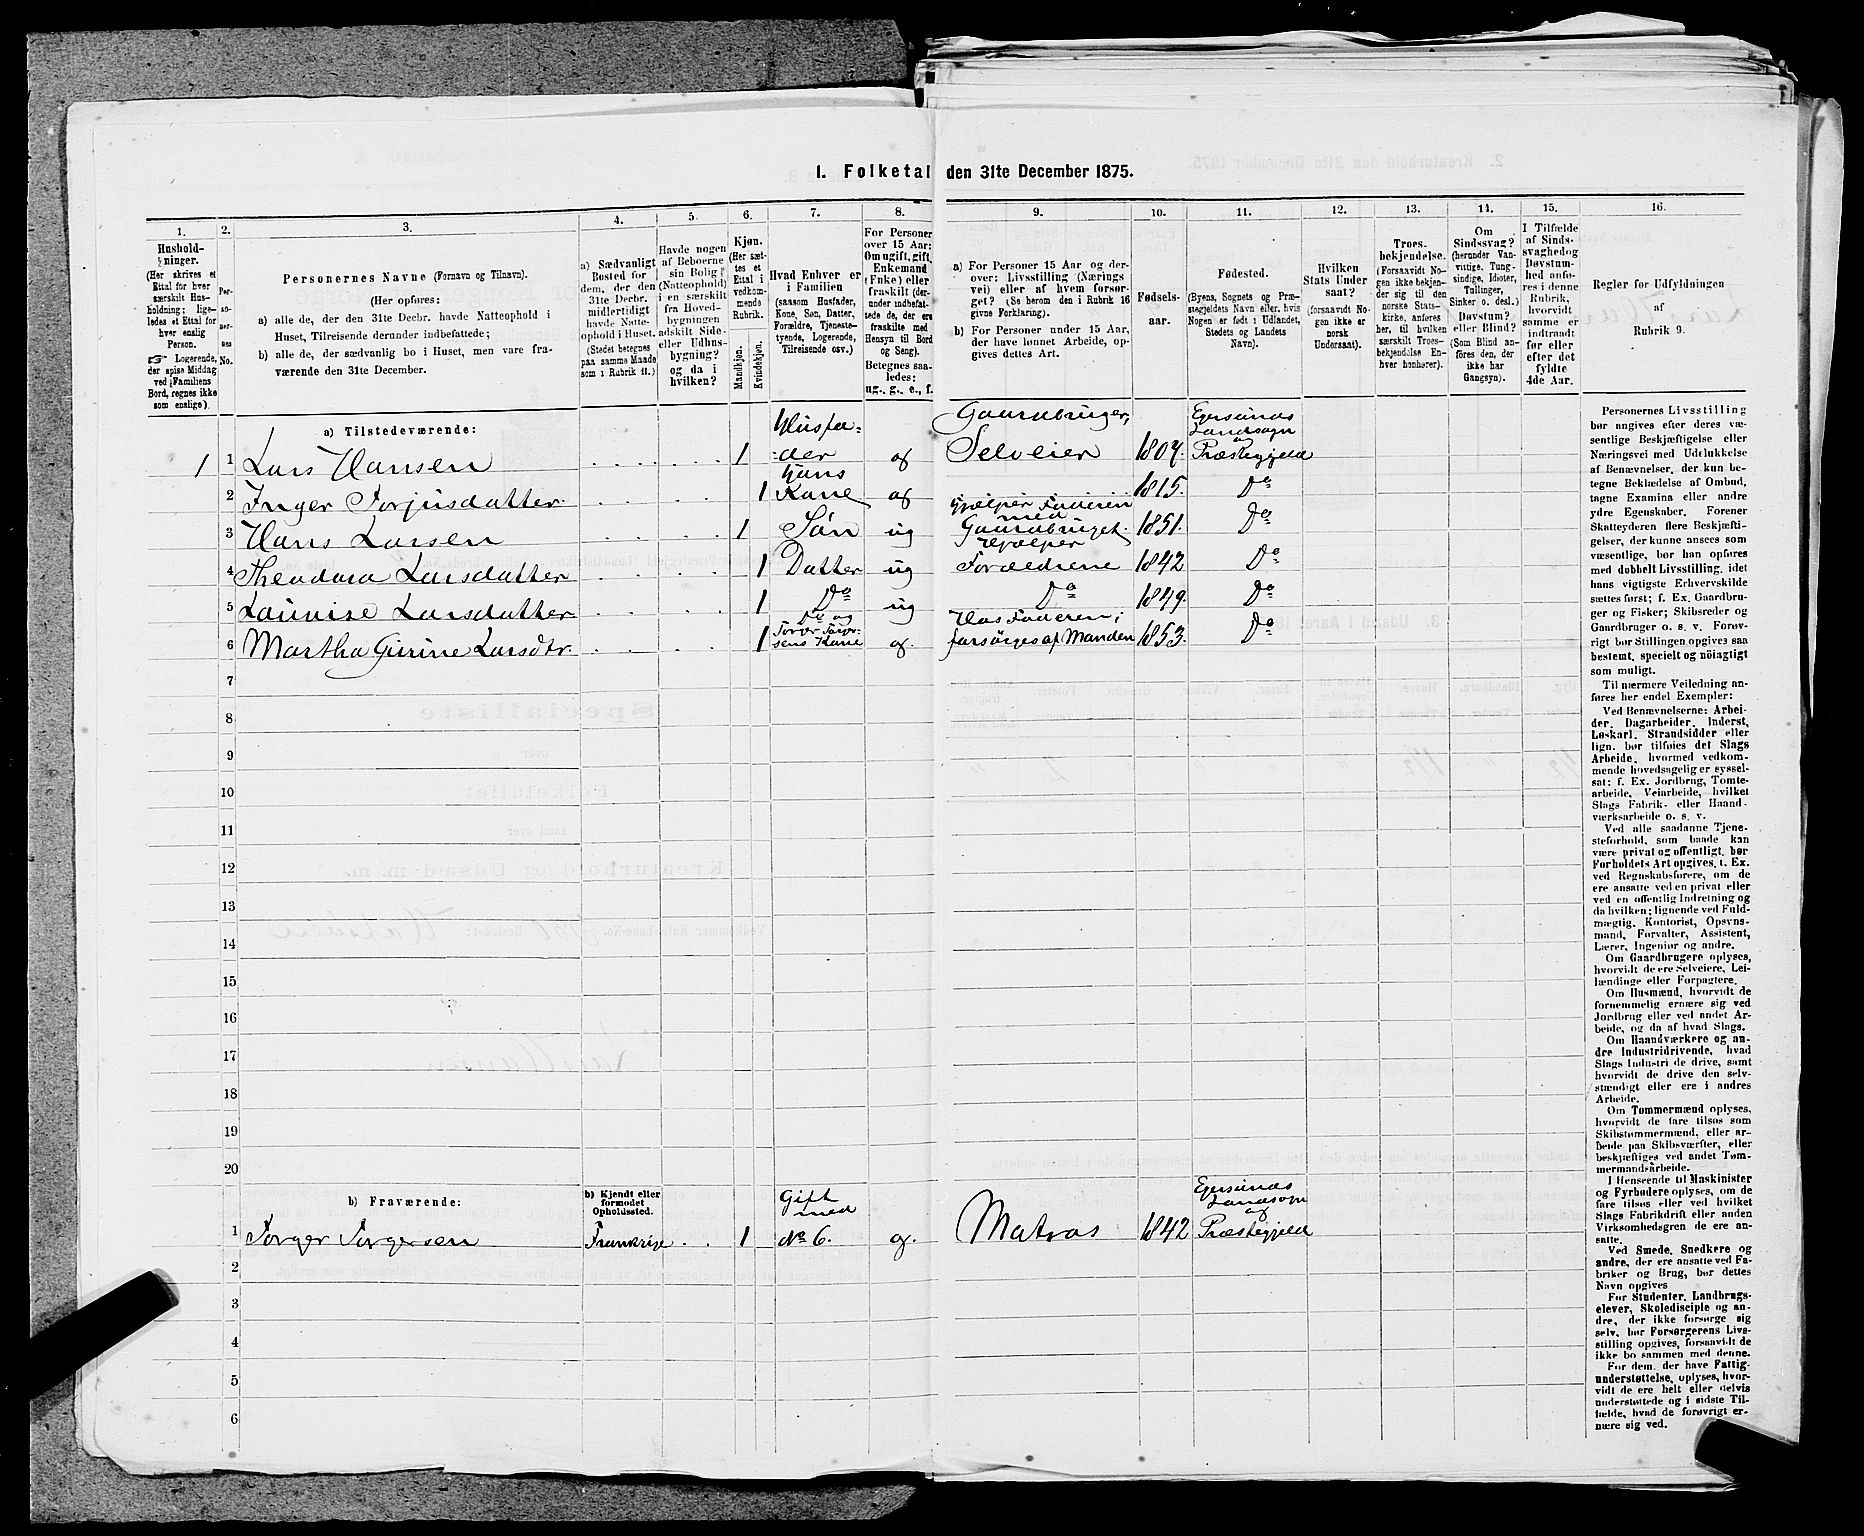 1. Folketal den 31te December 1875.
1.
2.
3.
4.
5.
6.
7.
8.
9.
10.
11.
12.
13.
14.
15.
16.
Hushold-
ninger.
(Her skrives et
Ettal for hver
særskilt Hus-
holdning; lige-
ledes et Ettal for
hver enslig
Person.
☞ Logerende,
der spise Middag
ved Familiens
Bord, regnes ikke
som enslige).
Per-
so-
ner-
nes
No.
Personernes Navne (Fornavn og Tilnavn).
(Her opføres:
a) alle de, der den 31te Decbr. havde Natteophold i
Huset, Tilreisende derunder indbefattede;
b) alle de, der sædvanlig bo i Huset, men vare fra-
værende den 31te December.
a) Sædvanligt
Bosted for
dem, der den
31te Decbr.
midlertidigt
havde Natte-
ophold i Huset.
(Stedet betegnes
paa samme Maade
som i Rubrik 11.)
Havde nogen
af Beboerne
sin Bolig
(Natteophold)
i en særskilt
fra Hoved-
bygningen
adskilt Side-
eller Udhus-
bygning?
og da i
hvilken?
Kjøn.
(Her sæt-
tes et
Ettal i
vedkom-
mende
Rubrik.
Mandkjøn.
Kvindekjøn.
Hvad Enhver er
i Familien
(saasom Husfader,
Kone, Søn, Datter,
Forældre, Tjeneste-
tyende, Logerende,
Tilreisende osv.)
For Personer
over 15 Aar:
Om ugift, gift,
Enkemand
(Enke) eller
fraskilt (der-
under indbefat-
tede de, der ere
fraskilte med
Hensyn til Bord
og Seng).
Betegnes saa-
ledes:
ug., g., e., f.
a) For Personer 15 Aar og der-
over: Livsstilling (Nærings
vei) eller af hvem forsør-
get? (Se herom den i Rubrik 16
givne Forklaring).
b) For Personer under 15 Aar,
der have lønnet Arbeide, op-
gives dettes Art.
Fødsels-
aar.
Fødested.
(Byens, Sognets og Præ-
stegjeldets Navn eller, hvis
Nogen er født i Udlandet,
Stedets og Landets
Navn).
Hvilken
Stats Under
saat?
(forsaavidt No-
gen ikke er
norsk
Undersaat).
Troes-
bekjendelse.
(Forsaavidt No-
gen ikke bekjen-
der sig til den
norske Stats-
kirke, anføres
her, til hvilken
særskilt Troes-
bekjendelse En-
hver henhører).
Om
Sindssvag?
(herunder Van-
vittige, Tung-
sindige, Idioter,
Tullinger,
Sinker o. desl.)
Døvstum?
eller Blind?
(Som Blind an-
føres den, der
ikke har
Gangsyn).
I Tilfælde
af Sinds-
svaghed og
Døvstum-
hed anfø-
res i denne
Rubrik,
hvorvidt
samme er
indtraadt
før eller
efter det
fyldte
4de Aar.
Regler for Udfyldningen
af
Rubrik 9.
a) Tilstedeværende:
1 1 Lars Hansen 1 Husfa-
der g Gaardbruger, Selveier 1809. Egersunds Landsogn & Præstegjeld
2 Inger Torjusdatter 1 Hans Kone g 1815. Do
3 Hans Larsen 1 Søn ug hjelper Faderen med Gaardbruget. 1851. Do
4 Theodora Larsdatter 1 Datter ug Hjelper Forældrene 1842 Do
5 Lauvise Larsdatter 1 Do ug Do 1849. Do
6 Martha Gurine Larsdtr 1 Do og Torger Torger-
sens Kone g. Hos Faderen; forsørges af Manden 1853. Do
7
8
9
10
11
12
13
14
15
16
17
18
19
20
b) Fraværende:
b) Kjendt eller
formodet
Opholdssted.
1 Torger Torgersen Frankrige 1 Gift med No 6. g. Matros 1842 Egersunds Landsogn og Præstegjeld
2
3
4
5
6
Personernes Livsstilling
bør angives efter deres væ-
sentlige Beskjæftigelse eller
Næringsvei med Udelukkelse
af Benævnelser, der kun be-
tegne Beklædelse af Ombud,
tagne Examina eller andre
ydre Egenskaber. Forener
Skatteyderen flere Beskjæfti-
gelser, der kunne ansees som
væsentlige, bør han opføres
med dobbelt Livsstilling, idet
hans vigtigste Erhvervskilde
sættes først; f. Ex. Gaardbru-
ger og Fisker; Skibsreder og
Gaardbruger o. s. v. Forøv-
rigt bør Stillingen opgives saa
bestemt, specielt og nöiagtigt
som muligt.
Til nærmere Veiledning an-
føres her endel Exempler:
Ved Benævnelserne: Arbei-
der, Dagarbeider, Inderst,
Løskarl, Strandsidder eller
lign. bør tilføies det Slags
Arbeide, hvormed vedkom-
mende hovedsagelig er syssel-
sat; f. Ex. Jordbrug, Tomte-
arbeide, Veiarbeide, hvilket
Slags Fabrik- eller Haand-
værksarbeide o. s. v.
Ved alle saadanne Tjene-
steforhold, som baade kan
være privat og offentligt, bør
Forholdets Art opgives, t. Ex.
ved Regnskabsførere, om de
ere ansatte ved en privat eller
ved en offentlig Indretning og
da hvilken; lignende ved Fuld-
mægtig, Kontorist, Opsyns-
mand, Forvalter, Assistent,
Lærer, Ingeniør og andre.
Om Gaardbrugere oplyses,
hvorvidt de ere Selveiere, Lei-
lændinge eller Forpagtere.
Om Husmænd, hvorvidt de
fornemmelig ernære sig ved
Jordbrug eller ved andet Ar-
beide, og da af hvad Slags.
Om Haandværkere og an-
dre Industridrivende, hvad
Slags Industri de drive, samt
hvorvidt de drive den selv-
stændigt eller ere i andres
Arbeide.
Om Tømmermænd oplyses,
hvorvidt de fare tilsøs som
Skibstømmermænd, eller ar-
beide paa Skibsværfter, eller
beskjæftiges ved andet Tøm-
mermandsarbeide.
I Henseende til Maskinister
og Fyrbødere oplyses, om de
fare tilsøs eller ved hvilket
Slags Fabrikdrift eller anden
Virksomhedsgren de ere an-
satte.
Ved Smede, Snedkere og
andre, der ere ansatte ved Fa-
briker og Brug, bør dettes
Navn opgives
For Studenter, Landbrugs-
elever, Skoledisciple og an-
dre, der ikke forsørge sig
selv, bør Forsørgerens Livs-
stilling opgives, forsaavidt de
ikke bo sammen med denne.
For dem, der have Fattig-
understøttelse, oplyses, hvor-
vidt de ere helt eller delvis
understøttede og i sidste Til-
fælde, hvad de forøvrigt er-
nære sig ved.